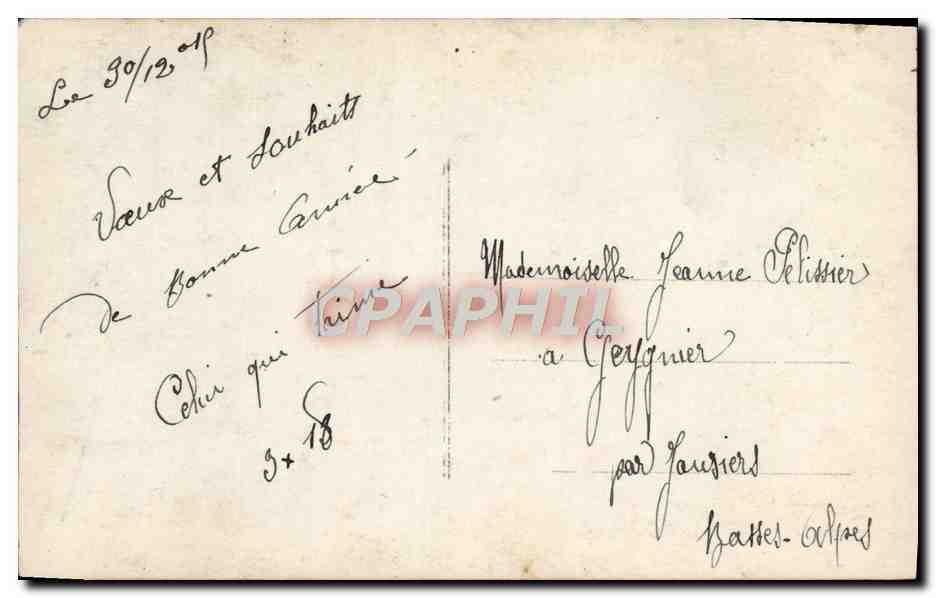 Le 30/12 015
Vœux et souhaits
de Bonne Année
Celui qui t'aime
3 + 18
CPAPHIL
Mademoiselle Jeanne Pelissier
a
par Jausiers
Basses-Alpes